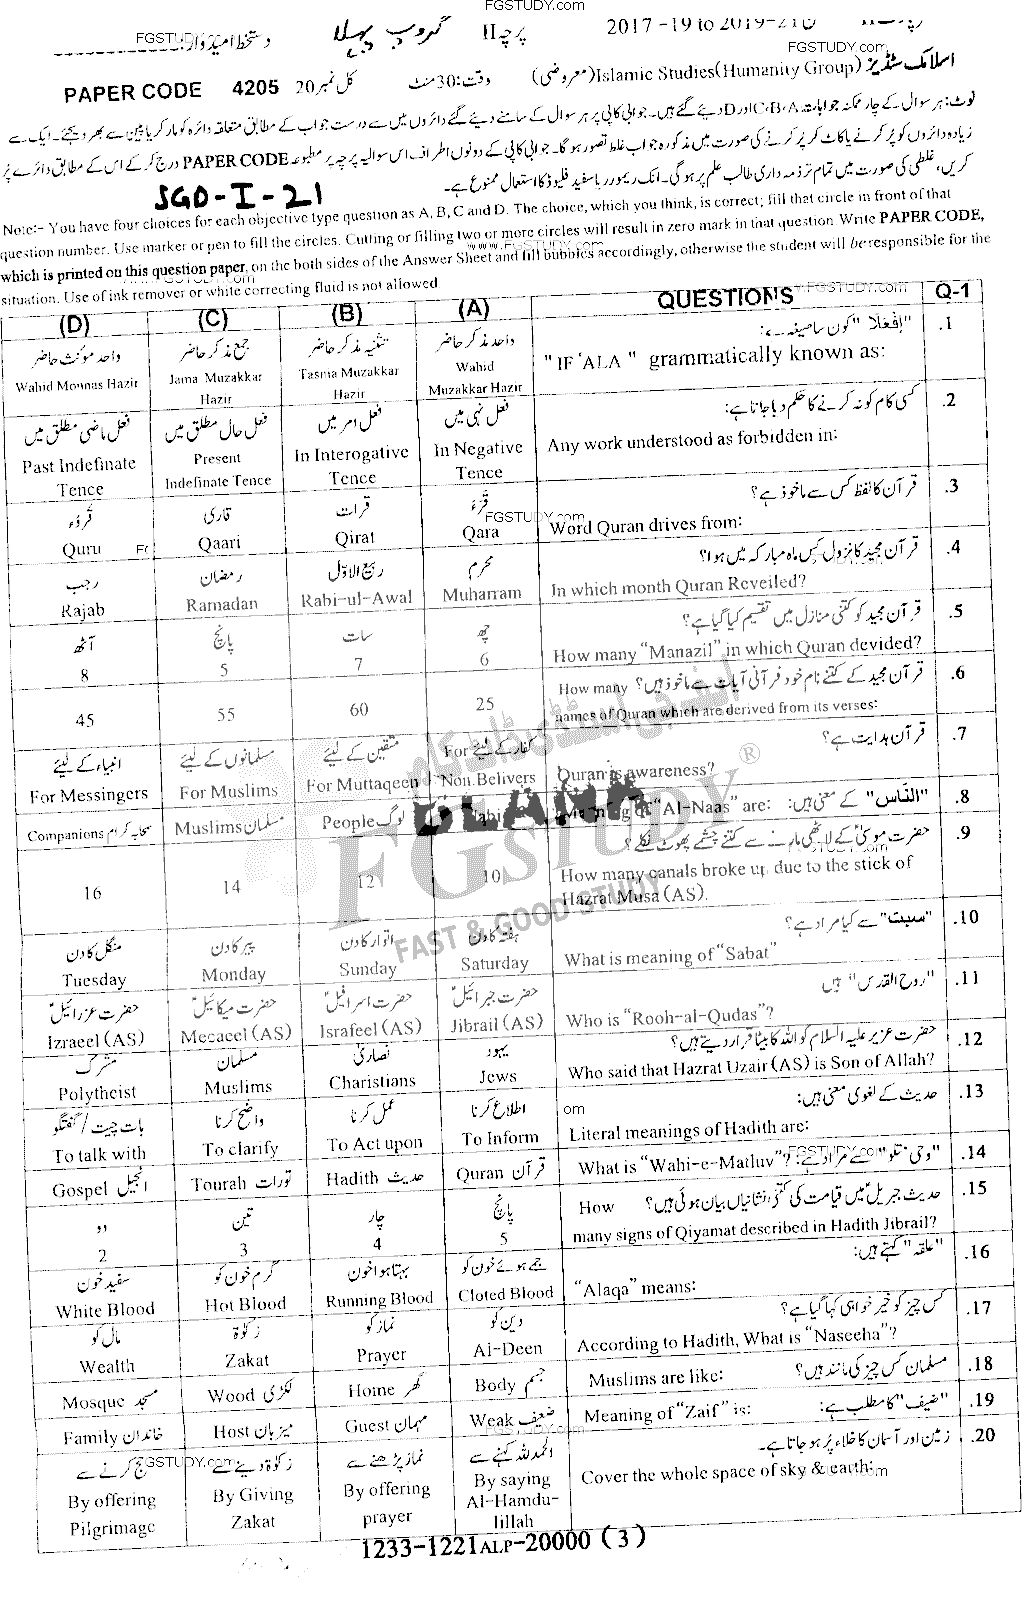 FGSTUDY.com
2017 -19 to 2019-21 پرچہ II گروپ پہلا دستخط امیدوار:
FGSTUDY.com
اسلامک سٹڈیز Islamic Studies(Humanity Group)(معروضی) وقت:30منٹ کل نمبر 20 PAPER CODE 4205
نوٹ: ہر سوال کے چار ممکنہ جوابات C،B،A اور D دیئے گئے ہیں۔ جوابی کاپی پر ہر سوال کے سامنے دیئے گئے دائروں میں سے درست جواب کے مطابق متعلقہ دائرہ کو مارکر یا پین سے بھر دیجئے۔ ایک سے
زیادہ دائروں کو پر کرنے یا کاٹ کر پر کرنے کی صورت میں مذکورہ جواب غلط تصور ہوگا۔ جوابی کاپی کے دونوں اطراف اس سوالیہ پرچہ پر مطبوعہ PAPER CODE درج کر کے اس کے مطابق دائرے پر
کریں، غلطی کی صورت میں تمام تر ذمہ داری طالب علم پر ہوگی۔ انک ریموور یا سفید فلیوڈ کا استعمال ممنوع ہے۔
SGD-I-21
Note:- You have four choices for each objective type question as A, B, C and D. The choice, which you think, is correct; fill that circle in front of that
question number. Use marker or pen to fill the circles. Cutting or filling two or more circles will result in zero mark in that question. Write PAPER CODE,
www.FGSTUDY.com
which is printed on this question paper, on the both sides of the Answer Sheet and fill bubbles accordingly, otherwise the student will be responsible for the
situation. Use of ink remover or white correcting fluid is not allowed
(D) (C) (B) (A) QUESTIONS Q-1
واحد مؤنث حاضر جمع مذکر حاضر تثنیہ مذکر حاضر واحد مذکر حاضر "اِفْعَلَا" کون سا صیغہ ہے: .1
Wahid Monnas Hazir Jama Muzakkar Hazir Tasma Muzakkar Hazir Wahid Muzakkar Hazir "IF'ALA" grammatically known as:
فعل ماضی مطلق میں فعل حال مطلق میں فعل امر میں فعل نہی میں کسی کام کو نہ کرنے کا حکم دیا جاتا ہے: .2
Past Indefinate Tence Present Indefinate Tence In Interogative Tence In Negative Tence Any work understood as forbidden in:
قُرُوْء قاری قرات قَرَءَ قرآن کا لفظ کس سے ماخوذ ہے؟ .3
Quru Qaari Qirat Qara Word Quran drives from:
رجب رمضان ربیع الاوّل محرم قرآن مجید کا نزول کس ماہ مبارکہ میں ہوا؟ .4
Rajab Ramadan Rabi-ul-Awal Muharram In which month Quran Reveiled?
آٹھ پانچ سات چھ قرآن مجید کو کتنی منازل میں تقسیم کیا گیا ہے؟ .5
8 5 7 6 How many "Manazil" in which Quran devided?
45 55 60 25 How many قرآن مجید کے کتنے نام خود قرآنی آیات سے ماخوذ ہیں؟ .6
names of Quran which are derived from its verses:
انبیاء کے لیئے مسلمانوں کے لیئے متقین کے لیئے کفار کے لیئے For قرآن ہدایت ہے؟ .7
For Messingers For Muslims For Muttaqeen Non.Belivers Quran is awareness?
Companions صحابہ کرام Muslims مسلمان People لوگ "الناس" کے معنی ہیں: "Al-Naas" are: .8
16 14 12 10 حضرت موسیٰؑ کے لاٹھی مارنے سے کتنے چشمے پھوٹ نکلے؟ .9
How many canals broke up due to the stick of
Hazrat Musa (AS).
منگل کا دن پیر کا دن اتوار کا دن ہفتہ کا دن "سبت" سے کیا مراد ہے؟ .10
Tuesday Monday Sunday Saturday What is meaning of "Sabat"
حضرت عزرائیلؑ حضرت میکائیلؑ حضرت اسرافیلؑ حضرت جبرائیلؑ "روح القدس" ہیں .11
Izraeel (AS) Mecaeel (AS) Israfeel (AS) Jibrail (AS) Who is "Rooh-al-Qudas"?
مشرک مسلمان نصاریٰ یہود حضرت عزیر علیہ السلام کو اللہ کا بیٹا قرار دیتے ہیں؟ .12
Polytheist Muslims Charistians Jews Who said that Hazrat Uzair (AS) is Son of Allah?
بات چیت / گفتگو واضح کرنا عمل کرنا اطلاع کرنا حدیث کے لغوی معنی ہیں: .13
To talk with To clarify To Act upon To Inform Literal meanings of Hadith are:
Gospel انجیل Tourah تورات Hadith حدیث Quran قرآن What is "Wahi-e-Matluv"? "وحی متلو" سے مراد ہے: .14
دو تین چار پانچ How حدیث جبریل میں قیامت کی کتنی نشانیاں بیان ہوئی ہیں؟ .15
2 3 4 5 many signs of Qiyamat described in Hadith Jibrail?
سفید خون گرم خون کو بہتا ہوا خون جمے ہوئے خون کو "علقہ" کہتے ہیں: .16
White Blood Hot Blood Running Blood Cloted Blood "Alaqa" means:
مال کو زکوٰۃ نماز کو دین کو کس چیز کو خیر خواہی کہا گیا ہے؟ .17
Wealth Zakat Prayer Al-Deen According to Hadith, What is "Naseeha"?
Mosque مسجد Wood لکڑی Home گھر Body جسم Muslims are like: مسلمان کس چیز کی مانند ہیں؟ .18
Family خاندان Host میزبان Guest مہمان Weak ضعیف Meaning of "Zaif" is: "ضیف" کا مطلب ہے: .19
حج کرنے سے زکوٰۃ دینے سے نماز پڑھنے سے الحمدللہ کہنے سے زمین اور آسمان کا خلاء پُر ہو جاتا ہے۔ .20
By offering Pilgrimage By Giving Zakat By offering prayer By saying Al-Hamdu-lillah Cover the whole space of sky & earth:
FGSTUDY
FAST & GOOD STUDY
1233-1221ALP-20000 (3)